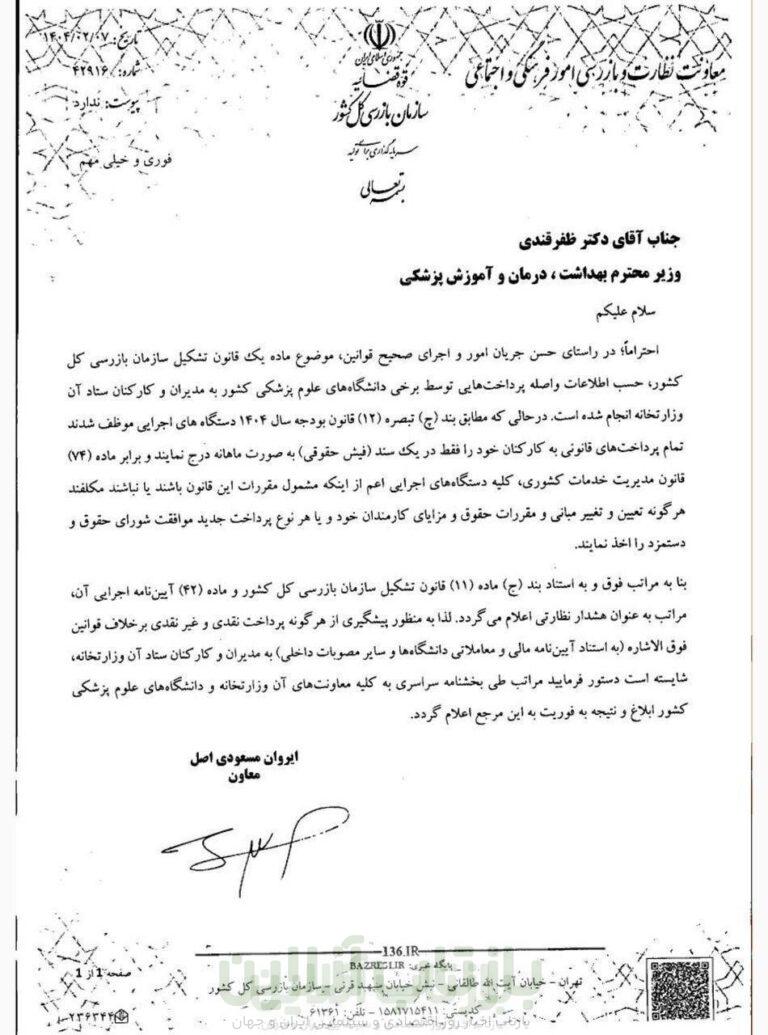 معاونت نظارت و بازرسی امور فرهنگی و اجتماعی
جمهوری اسلامی ایران
قوه قضائیه
سازمان بازرسی کل کشور
سرمایه‌گذاری برای تولید
بسمه تعالی
تاریخ: ۱۴۰۴/۰۲/۰۷
شماره: ۴۲۹۱۶
پیوست: ندارد
فوری و خیلی مهم
جناب آقای دکتر ظفرقندی
وزیر محترم بهداشت، درمان و آموزش پزشکی
سلام علیکم
احتراماً؛ در راستای حسن جریان امور و اجرای صحیح قوانین، موضوع ماده یک قانون تشکیل سازمان بازرسی کل
کشور، حسب اطلاعات واصله پرداخت‌هایی توسط برخی دانشگاه‌های علوم پزشکی کشور به مدیران و کارکنان ستاد آن
وزارتخانه انجام شده است. درحالی که مطابق بند (چ) تبصره (۱۲) قانون بودجه سال ۱۴۰۴ دستگاه های اجرایی موظف شدند
تمام پرداخت‌های قانونی به کارکنان خود را فقط در یک سند (فیش حقوقی) به صورت ماهانه درج نمایند و برابر ماده (۷۴)
قانون مدیریت خدمات کشوری، کلیه دستگاه‌های اجرایی اعم از اینکه مشمول مقررات این قانون باشند یا نباشند مکلفند
هرگونه تعیین و تغییر مبانی و مقررات حقوق و مزایای کارمندان خود و یا هر نوع پرداخت جدید موافقت شورای حقوق و
دستمزد را اخذ نمایند.
بنا به مراتب فوق و به استناد بند (ج) ماده (۱۱) قانون تشکیل سازمان بازرسی کل کشور و ماده (۴۲) آیین‌نامه اجرایی آن،
مراتب به عنوان هشدار نظارتی اعلام می‌گردد. لذا به منظور پیشگیری از هرگونه پرداخت نقدی و غیر نقدی برخلاف قوانین
فوق الاشاره (به استناد آیین‌نامه مالی و معاملاتی دانشگاه‌ها و سایر مصوبات داخلی) به مدیران و کارکنان ستاد آن وزارتخانه،
شایسته است دستور فرمایید مراتب طی بخشنامه سراسری به کلیه معاونت‌های آن وزارتخانه و دانشگاه‌های علوم پزشکی
کشور ابلاغ و نتیجه به فوریت به این مرجع اعلام گردد.
ایروان مسعودی اصل
معاون
136.IR
پایگاه خبری: BAZRESI.IR
تهران - خیابان آیت الله طالقانی - نبش خیابان سپهبد قرنی - سازمان بازرسی کل کشور
کدپستی: ۱۵۸۱۷۱۵۴۱۱ - تلفن: ۶۱۳۶۱
صفحه 1 از 1
۱-۲۳۶۳۴۴
بازتاب آنلاین
بازتاب اخبار روز اقتصادی و سیاسی ایران و جهان